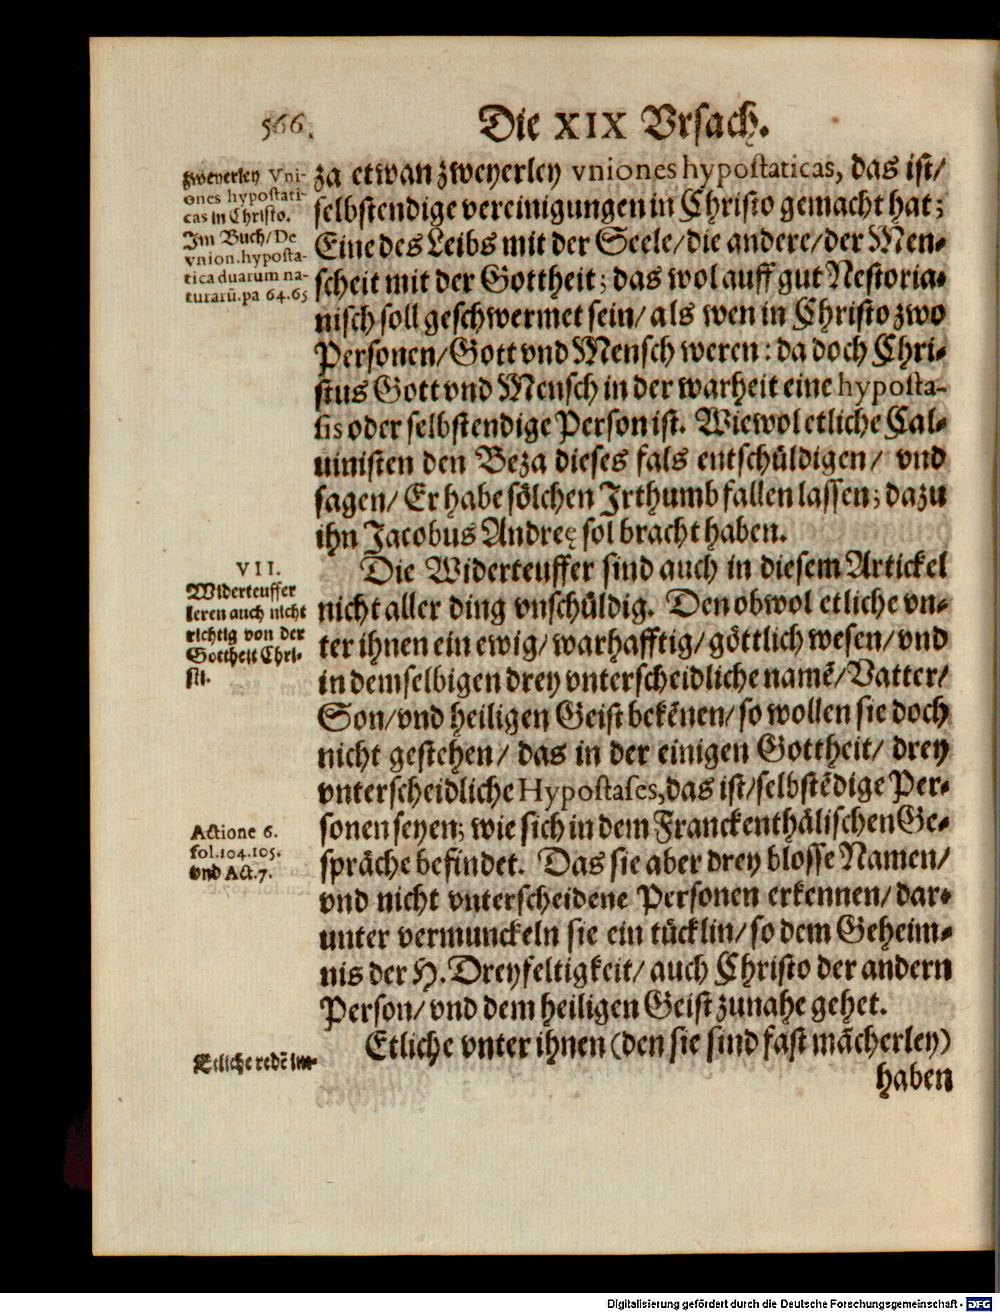 566.
Die XIX Vrsach.
zweyerley Vni-
ones hypostati-
cas in Christo.
Im Buch/De
vnion.hyposta-
tica duarum na-
turarū.pa 64.65
za etwan zweyerley vniones hypostaticas, das ist/
selbstendige vereinigungen in Christo gemacht hat;
Eine des Leibs mit der Seele/die andere/der Men-
scheit mit der Gottheit; das wol auff gut Nestoria-
nisch soll geschwermet sein/ als wen in Christo zwo
Personen/Gott vnd Mensch weren: da doch Chri-
stus Gott vnd Mensch in der warheit eine hyposta-
sis oder selbstendige Person ist. Wiewol etliche Cal-
uinisten den Beza dieses fals entschüldigen/ vnd
sagen/ Er habe sölchen Irthumb fallen lassen; dazu
ihn Jacobus Andreę sol bracht haben.
VII.
Widerteuffer
leren auch nicht
richtig von der
Gottheit Chri-
sti.
Die Widerteuffer sind auch in diesem Artickel
nicht aller ding vnschüldig. Den obwol etliche vn-
ter ihnen ein ewig/ warhafftig/ göttlich wesen/ vnd
in demselbigen drey vnterscheidliche namē/ Vatter/
Son/ vnd heiligen Geist bekēnen/ so wollen sie doch
nicht gestehen/ das in der einigen Gottheit/ drey
vnterscheidliche Hypostases, das ist/ selbstēdige Per-
sonen seyen; wie sich in dem Franckenthälischen Ge-
spräche befindet. Das sie aber drey blosse Namen/
vnd nicht vnterscheidene Personen erkennen/ dar-
unter vermunckeln sie ein tücklin/ so dem Geheim-
nis der H. Dreyfeltigkeit/ auch Christo der andern
Person/ vnd dem heiligen Geist zunahe gehet.
Actione 6.
fol.104.105.
vnd Act.7.
Etliche vnter ihnen (den sie sind fast mācherley)
Etliche redē
haben
Digitalisierung gefördert durch die Deutsche Forschungsgemeinschaft - DFG